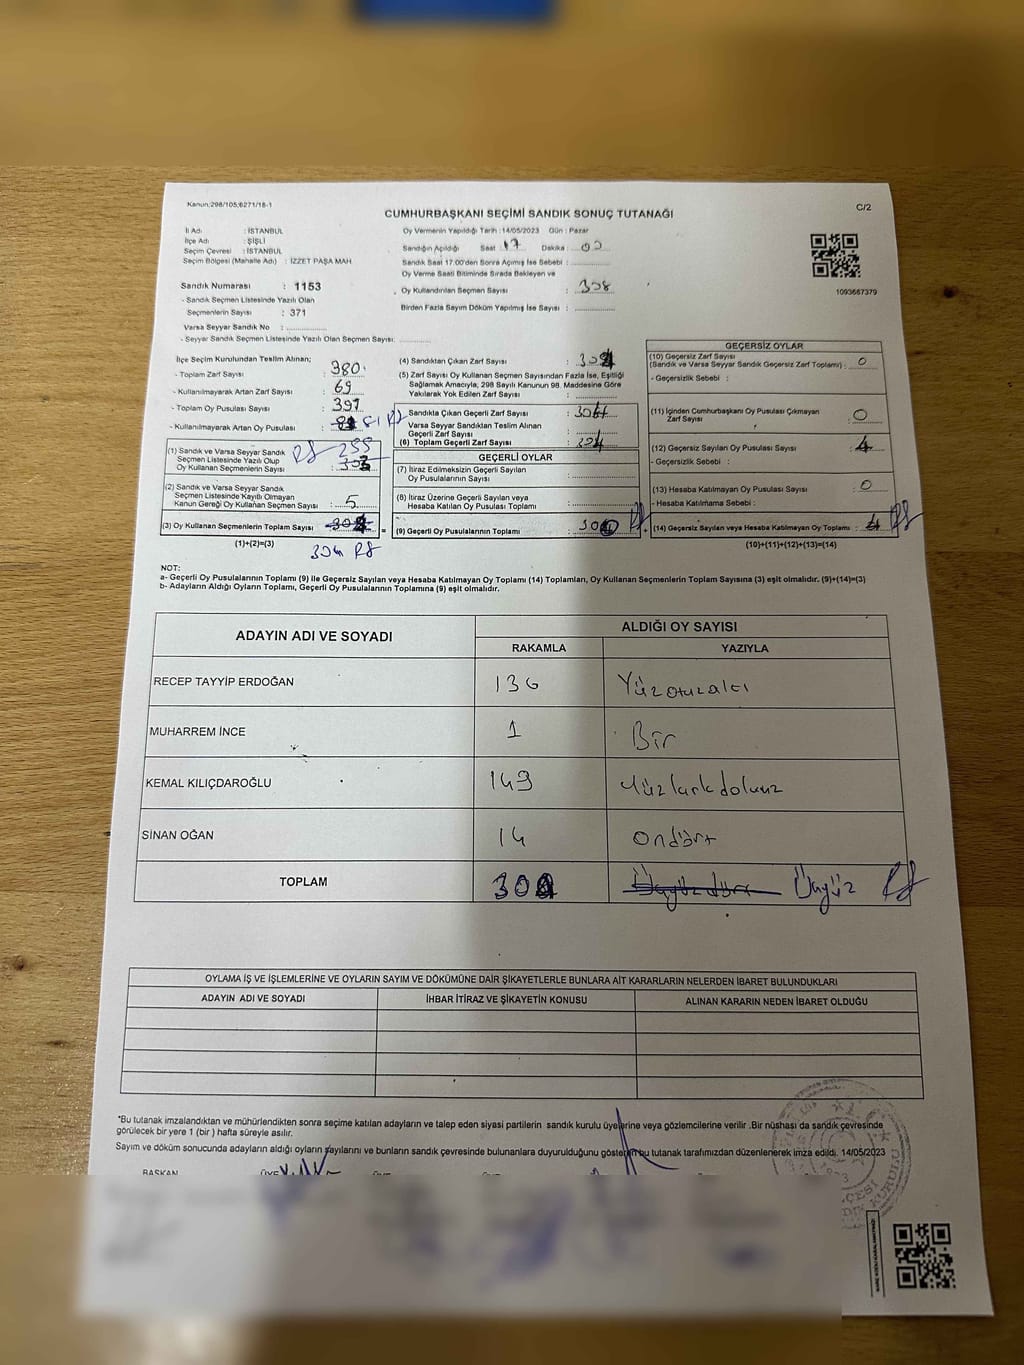 Kanun:298/105,6271/18-1
C/2
CUMHURBAŞKANI SEÇİMİ SANDIK SONUÇ TUTANAĞI
İl Adı : İSTANBUL
İlçe Adı : ŞİŞLİ
Seçim Çevresi : İSTANBUL
Seçim Bölgesi (Mahalle Adı) : İZZET PAŞA MAH
Sandık Numarası : 1153
- Sandık Seçmen Listesinde Yazılı Olan
Seçmenlerin Sayısı : 371
Varsa Seyyar Sandık No :
- Seyyar Sandık Seçmen Listesinde Yazılı Olan Seçmen Sayısı:
Oy Vermenin Yapıldığı Tarih :14/05/2023 Gün : Pazar
Sandığın Açıldığı Saat : 17 Dakika : 00
Sandık Saat 17.00'den Sonra Açımış İse Sebebi :
Oy Verme Saati Bitiminde Sırada Bekleyen ve
Oy Kullandırılan Seçmen Sayısı : 308
Birden Fazla Sayım Döküm Yapılmış İse Sayısı :
1093667379
İlçe Seçim Kurulundan Teslim Alınan;
- Toplam Zarf Sayısı : 380
- Kullanılmayarak Artan Zarf Sayısı : 69
- Toplam Oy Pusulası Sayısı : 391
- Kullanılmayarak Artan Oy Pusulası :
(1) Sandık ve Varsa Seyyar Sandık
Seçmen Listesinde Yazılı Olup
Oy Kullanan Seçmenlerin Sayısı :
(2) Sandık ve Varsa Seyyar Sandık
Seçmen Listesinde Kayıtlı Olmayan
Kanun Gereği Oy Kullanan Seçmen Sayısı : 5
(3) Oy Kullanan Seçmenlerin Toplam Sayısı :
304
(1)+(2)=(3)
(4) Sandıktan Çıkan Zarf Sayısı : 304
(5) Zarf Sayısı Oy Kullanan Seçmen Sayısından Fazla İse, Eşitliği
Sağlamak Amacıyla, 298 Sayılı Kanunun 98. Maddesine Göre
Yakılarak Yok Edilen Zarf Sayısı :
Sandıkta Çıkan Geçerli Zarf Sayısı : 304
Varsa Seyyar Sandıktan Teslim Alınan
Geçerli Zarf Sayısı :
(6) Toplam Geçerli Zarf Sayısı : 304
GEÇERLİ OYLAR
(7) İtiraz Edilmeksizin Geçerli Sayılan
Oy Pusulalarının Sayısı :
(8) İtiraz Üzerine Geçerli Sayılan veya
Hesaba Katılan Oy Pusulası Toplamı :
(9) Geçerli Oy Pusulalarının Toplamı : 300
GEÇERSİZ OYLAR
(10) Geçersiz Zarf Sayısı
(Sandık ve Varsa Seyyar Sandık Geçersiz Zarf Toplamı) : 0
- Geçersizlik Sebebi :
(11) İçinden Cumhurbaşkanı Oy Pusulası Çıkmayan
Zarf Sayısı : 0
(12) Geçersiz Sayılan Oy Pusulası Sayısı : 4
- Geçersizlik Sebebi :
(13) Hesaba Katılmayan Oy Pusulası Sayısı : 0
- Hesaba Katılmama Sebebi :
(14) Geçersiz Sayılan veya Hesaba Katılmayan Oy Toplamı : 4
(10)+(11)+(12)+(13)=(14)
NOT:
a- Geçerli Oy Pusulalarının Toplamı (9) ile Geçersiz Sayılan veya Hesaba Katılmayan Oy Toplamı (14) Toplamları, Oy Kullanan Seçmenlerin Toplam Sayısına (3) eşit olmalıdır. (9)+(14)=(3)
b- Adayların Aldığı Oyların Toplamı, Geçerli Oy Pusulalarının Toplamına (9) eşit olmalıdır.
ADAYIN ADI VE SOYADI
ALDIĞI OY SAYISI
RAKAMLA YAZIYLA
RECEP TAYYİP ERDOĞAN 136 Yüzotuzaltı
MUHARREM İNCE 1 Bir
KEMAL KILIÇDAROĞLU 149 Yüzkırkdokuz
SİNAN OĞAN 14 Ondört
TOPLAM 300 Üçyüzdört Üçyüz
OYLAMA İŞ VE İŞLEMLERİNE VE OYLARIN SAYIM VE DÖKÜMÜNE DAİR ŞİKAYETLERLE BUNLARA AİT KARARLARIN NELERDEN İBARET BULUNDUKLARI
ADAYIN ADI VE SOYADI İHBAR İTİRAZ VE ŞİKAYETİN KONUSU ALINAN KARARIN NEDEN İBARET OLDUĞU
*Bu tutanak imzalandıktan ve mühürlendikten sonra seçime katılan adayların ve talep eden siyasi partilerin sandık kurulu üyelerine veya gözlemcilerine verilir .Bir nüshası da sandık çevresinde
görülecek bir yere 1 (bir ) hafta süreyle asılır.
Sayım ve döküm sonucunda adayların aldığı oyların sayılarını ve bunların sandık çevresinde bulunanlara duyurulduğunu gösteren bu tutanak tarafımızdan düzenlenerek imza edildi. 14/05/2023
BAŞKAN ÜYE